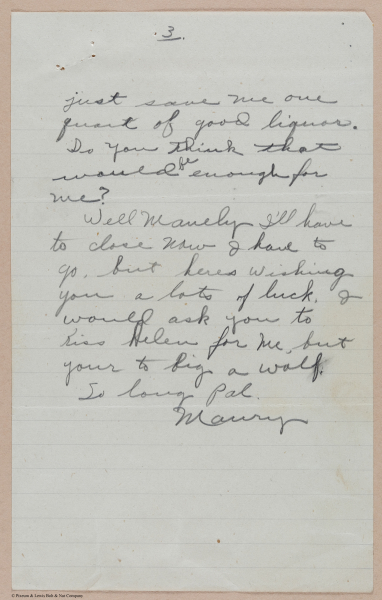 3.
just save me one
quart of good liquor.
Do you think that
would be enough for
me?
Well Manely I'll have
to close now I have to
go, but heres wishing
you a lots of luck. I
would ask you to
kiss Helen for me, but
your to big a wolf.
So long Pal.
Maury
© Pearson & Lewis Bolt & Nut Company